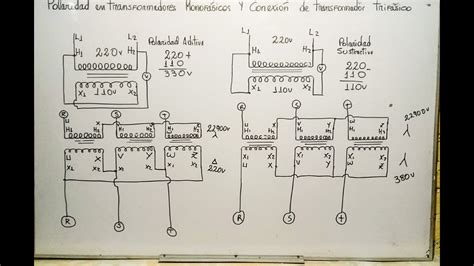 Polaridad en transformadores Monofásicos Y Conexión de transformador trifásico
L1 L2
220v
H1 H2
V
X1 X2
110v
Polaridad Aditiva
220+
110
330v
L1 L2
220v
H1 H2
V
X1 X2
110v
Polaridad
Sustractiva
220-
110
110v
R S T
H1 H2 H1 H2 H1 H2
22900v
U X V Y W Z
X1 X2 X1 X2
Δ
220v
R S T
U X V Y W
H1 H2 H1 H2 H1 H2
22900v
380v
R S T